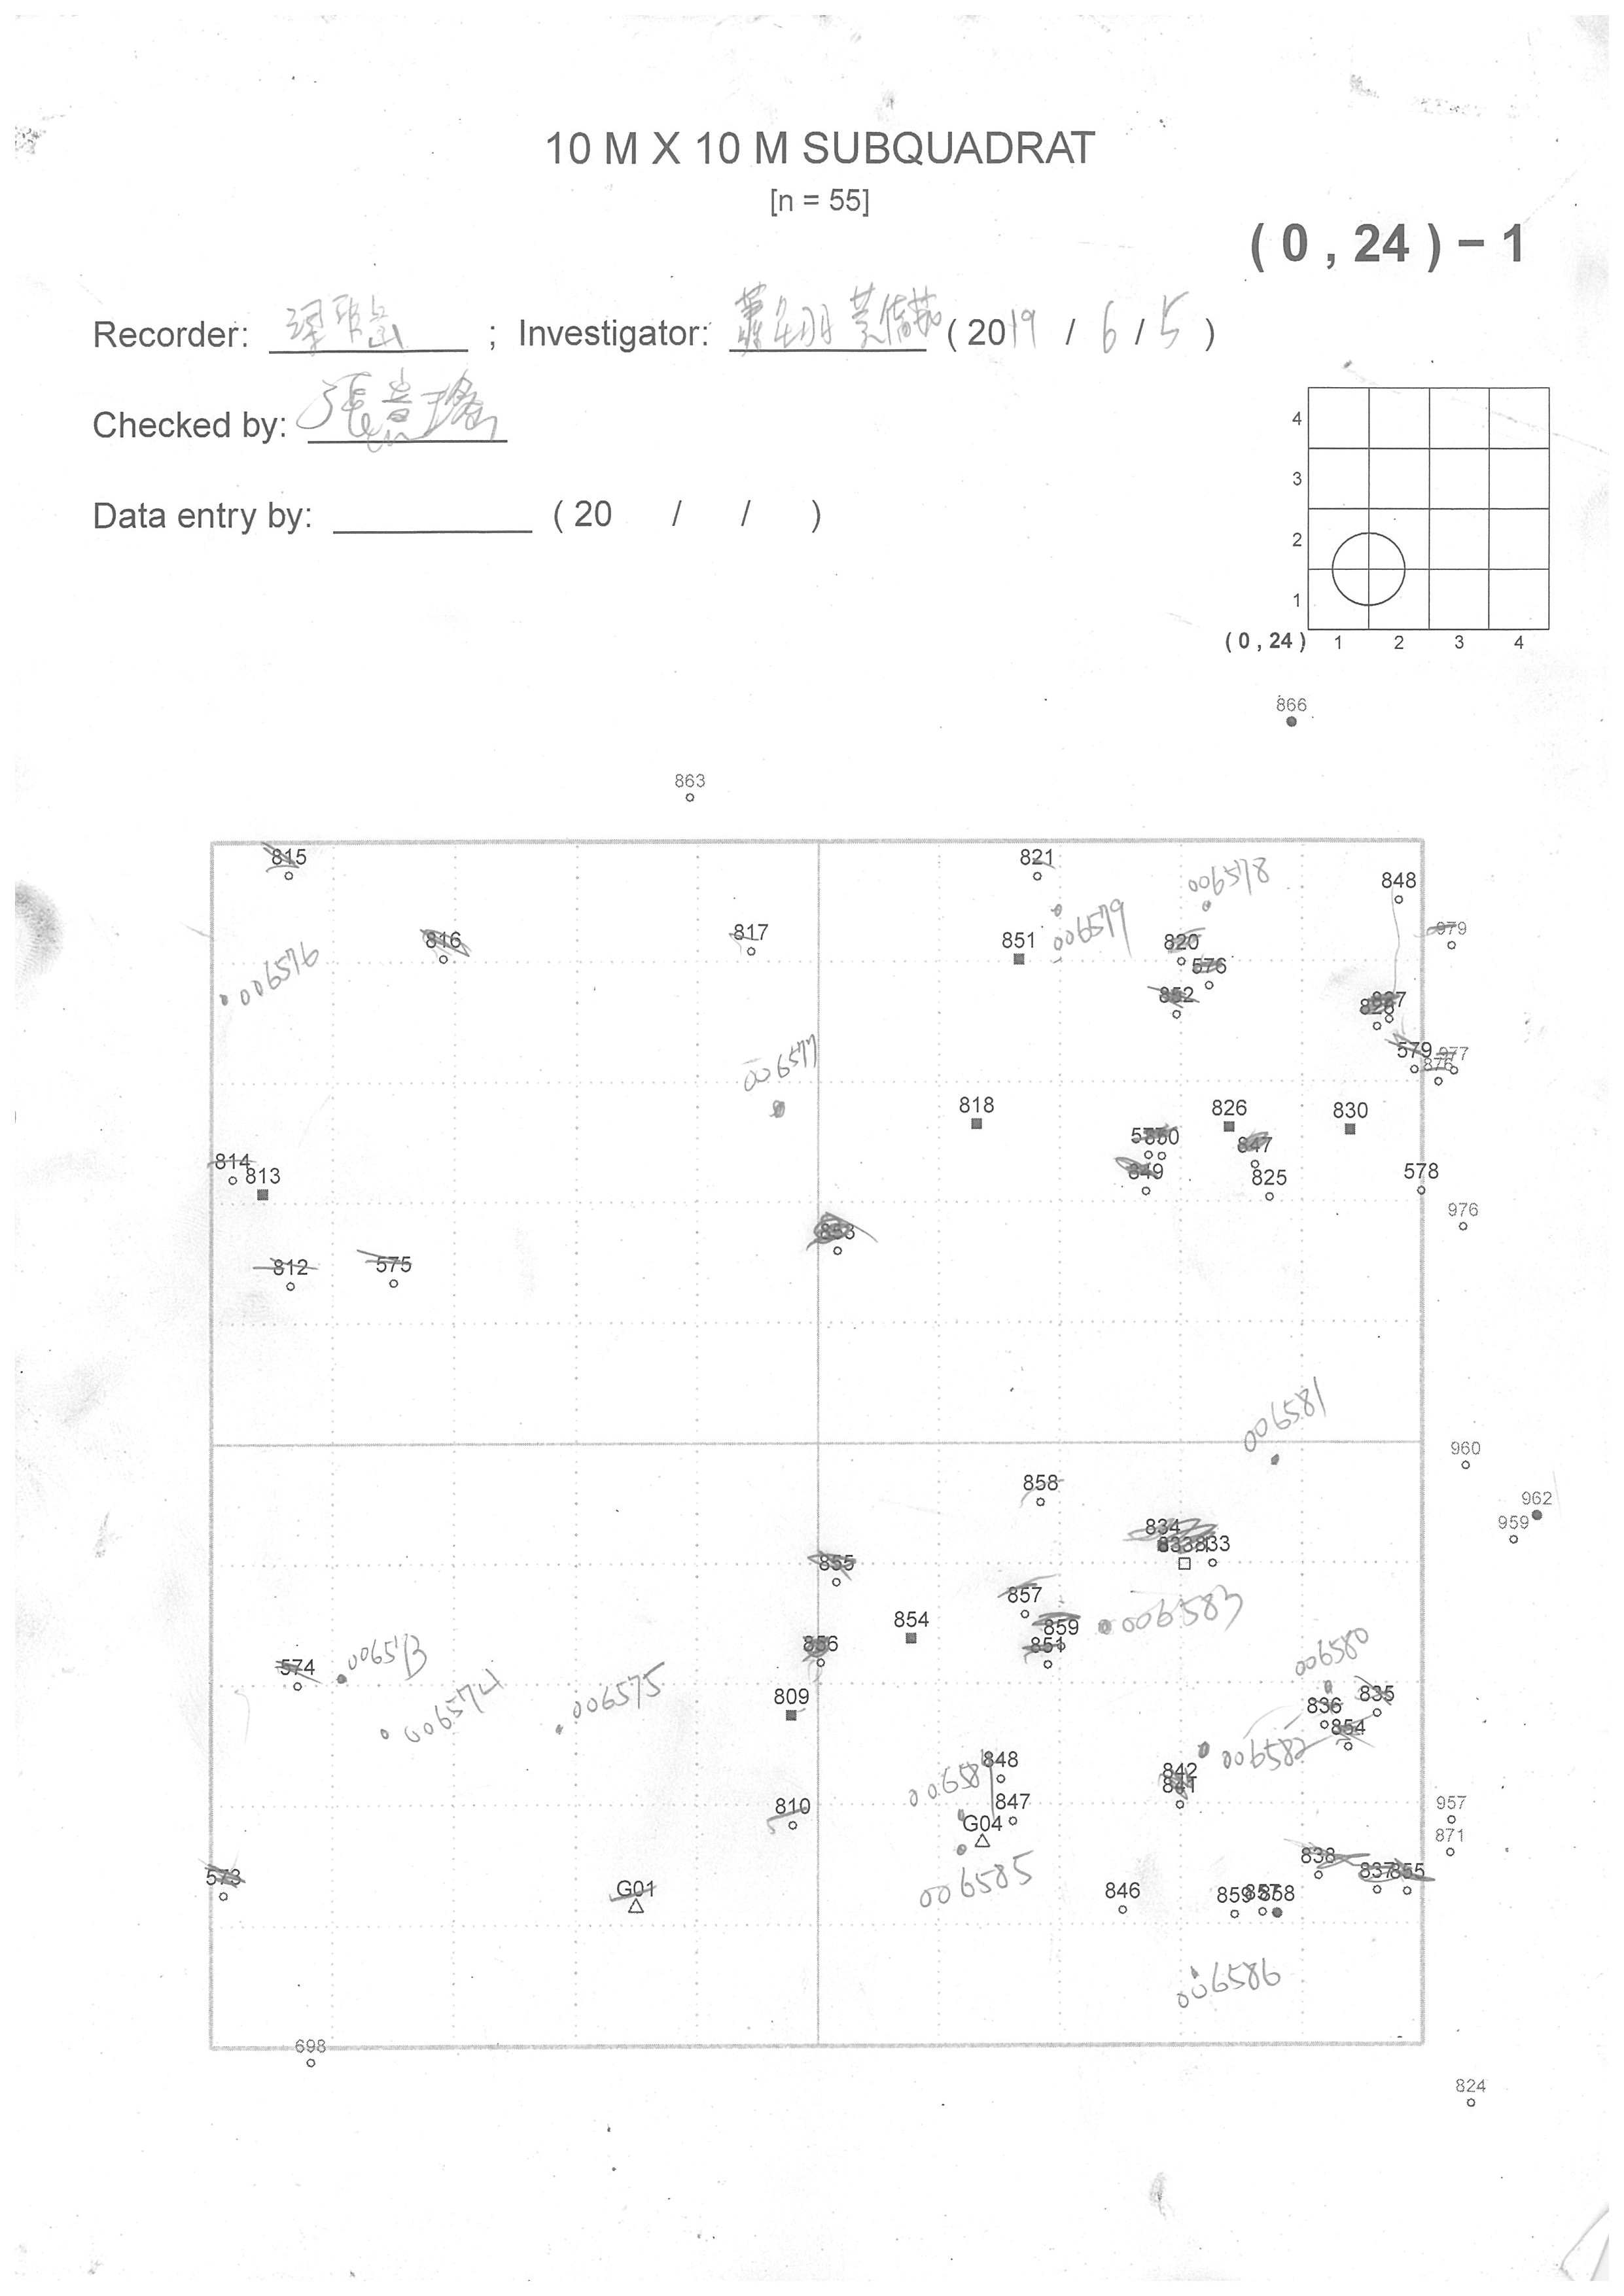 10 M X 10 M SUBQUADRAT
[n = 55]
( 0 , 24 ) − 1
Recorder: ; Investigator: ( 2019 / 6 / 5 )
Checked by:
Data entry by: ( 20 / / )
4
3
2
1
( 0 , 24 ) 1 2 3 4
866
863
815
821
006578
848
006579
816
817
851
820
979
006576
576
852
827
006577
579
977
876
818
826
830
847
849
814
813
825
578
976
853
812
575
006581
960
858
962
834
959
833
855
857
854
859
006583
851
856
574
006573
006574
006575
006580
809
836
835
854
006582
848
842
841
00658
810
847
957
G04
871
838
573
837
855
G01
006585
846
859
857
858
006586
698
824